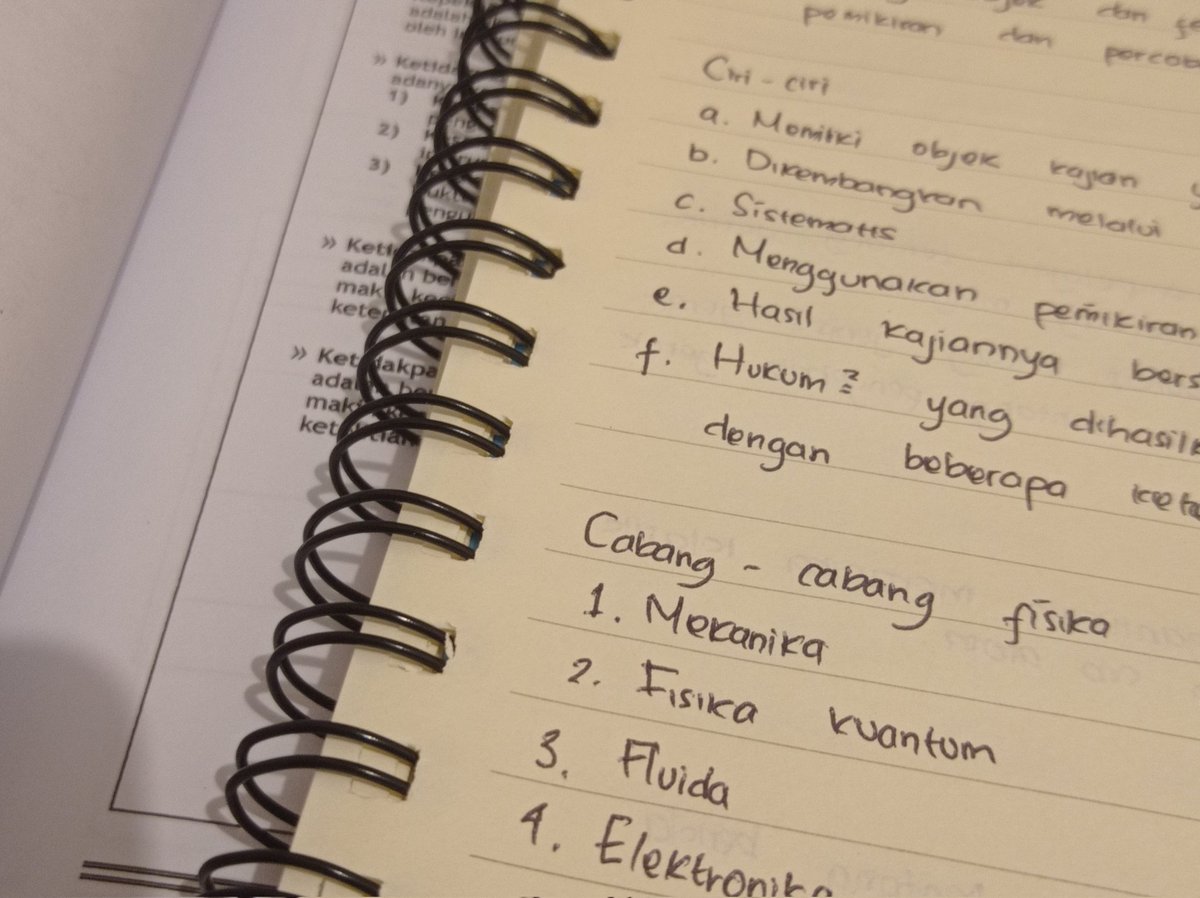 adalah
oleh
» Ketid
adany
1)
2)
3)
» Keti
adal be
mak
kete an
» Ket dakpa
ada be
mak
ket tian
dan
pemikiran dan percob
Ciri - ciri
a. Memiliki objek kajian y
b. Dikembangkan melalui
c. Sistematis
d. Menggunakan pemikiran
e. Hasil kajiannya bers
f. Hukum² yang dihasilk
dengan beberapa kete
Cabang - cabang fisika
1. Mekanika
2. Fisika kuantum
3. Fluida
4. Elektronika